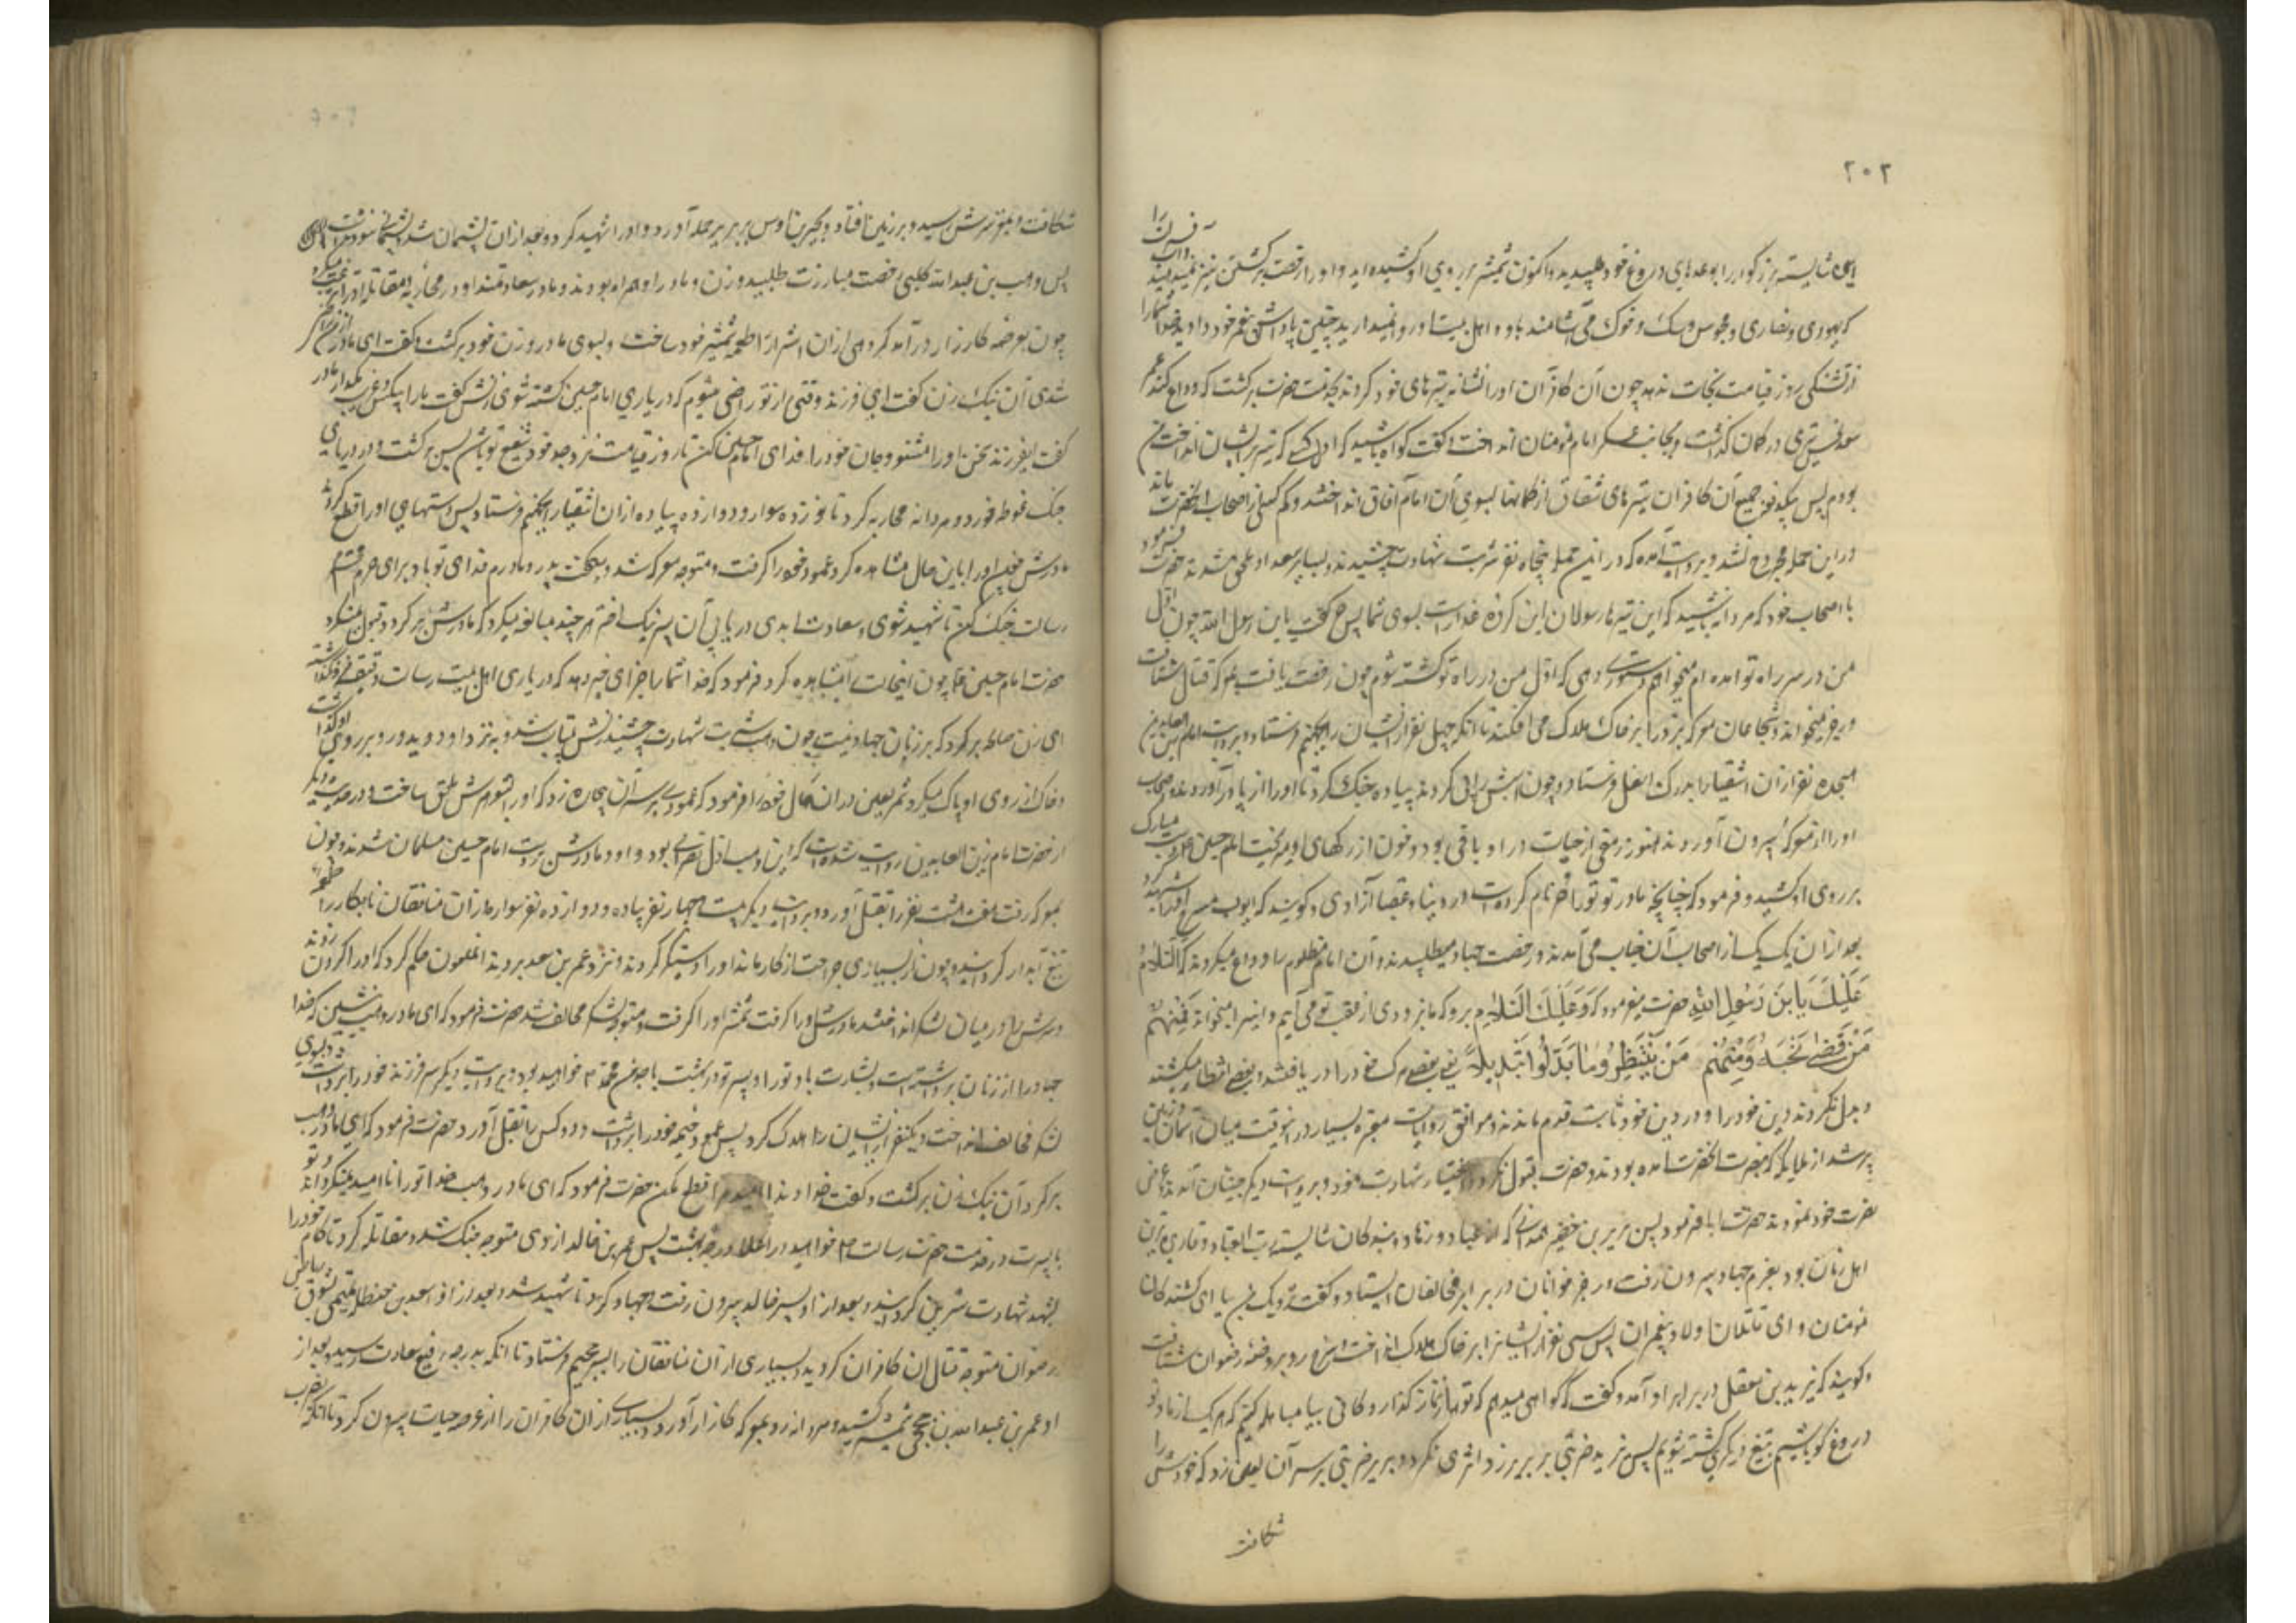 ۲۰۲
شایسته بزرگوار را بوعدهای دروغ خود طلبیدید و اکنون شمشیر بر روی او کشیده اید و او را رخصت برگشتن نیز نمیدهید
که یهودی و نصاری و مجوس و سگ و خوک می آشامند باو و اهل بیت او روا نمیدارید چنین پاداش پیغمبر خود دادید خدا شما را
از تشنگی روز قیامت نجات ندهد چون آن کافران او را نشانه تیرهای خود کردند بخدمت حضرت برگشت
سعد تیری در کمان گذاشت و بجانب عسکر امام مومنان انداخت و گفت گواه باشید که اول کسی که تیر بر ایشان انداخت من
بودم پس جمیع آن کافران تیرهای شقاق از کمانها بسوی آن امام آفاق انداختند و کم کسی از اصحاب آنحضرت ماند
در این حمله مجروح نشد و بروایت آمده که در این حمله پنجاه نفر شربت شهادت چشیدند
با اصحاب خود که مردانه باشید که این تیرها رسولان این گروه غدارست بسوی شما پس حر گفت یا بن رسول الله چون اول
من در سر راه تو آمده ام میخواهم دستوری دهی که اول من در راه تو کشته شوم چون رخصت یافت بمعرکه قتال شتافت
و رجز میخواند و شجاعان معرکه نبرد را بر خاک هلاک می افکند تا آنکه چهل نفر از ایشان را بجهنم فرستاد و بروایت امام زین العابدین
هیجده نفر از آن اشقیا را بدرک اسفل فرستاد و چون اسبش را پی کردند پیاده جنگ کرد تا او را از پا در آوردند
او را از معرکه بیرون آوردند هنوز رمقی از حیات در او باقی بود و خون از رگهای او میریخت امام حسین دست مبارک
بر روی او کشید و فرمود که چنانچه مادر تو تو را حر نام کرده است در دنیا و عقبا آزادی و گویند که ایوب مسرح او را شهید کرد
بعد از آن یک یک از اصحاب آن جناب می آمدند و رخصت جهاد میطلبیدند و آن امام مظلوم را وداع میکردند که السلام
علیک یا بن رسول الله حضرت میفرمود که و علیک السلام برو که ما بزودی از عقب تو می آییم و این را میخواند فمنهم
من قضی نحبه و منهم من ینتظر و ما بدلوا تبدیلا یعنی بعضی مرگ خود را دریافتند و بعضی انتظار میکشند
و بدل نکردند دین خود را و در دین خود ثابت قدم ماندند و موافق روایات معتبره بسیار در انوقت میان آسمان و زمین
پر شد از ملایکه که بنصرت آنحضرت آمده بودند و حضرت قبول نکرد و اختیار شهادت نمود و بروایت دیگر جنیان آمدند
نصرت خود نمودند حضرت ابا فرمود پس بریر بن خضیر همدانی که از عباد و زهاد و بندگان شایسته رب العباد و قاری ترین
اهل زمان بود بعزم جهاد بیرون رفت و رجز خوانان در برابر مخالفان ایستاد و گفت نزدیک من بیا ای کشنده گان
مومنان و ای قاتلان اولاد پیغمبران پس سی نفر از ایشان را بر خاک هلاک انداخت و رو بروضه رضوان شتافت
و گویند که یزید بن معقل در برابر او آمد و گفت که گواهی میدهم که تو بیا مباهله کنیم که هر یک از ما و تو
دروغ گو باشیم بتیغ دیگری کشته شویم پس یزید ضربتی بر بریر زد اثری نکرد و بریر ضربتی بر سر آن لعین زد که خودش را
شکافت
شکافت و بمغز سرش رسید و بر زمین افتاد و بحیر بن اوس بر بریر حمله آورد و او را شهید کرد و بعد از آن پشیمان شد
پس وهب بن عبدالله کلبی رخصت مبارزت طلبید و زن و مادر او همراه بودند و مادر سعادتمند او در محاربه و مقاتله
چون بعرصه کارزار در آمد گروهی از آن اشرار را طعمه شمشیر خود ساخت و بسوی مادر و زن خود برگشت و گفت ای مادر
شدی آن نیک زن گفت ای فرزند وقتی از تو راضی میشوم که در یاری امام حسین کشته شوی زنش گفت
گفت ای فرزند سخن او را مشنو و جان خود را فدای امام حسین کن تا روز قیامت نزد جد خود شفیع تو باشد پس برگشت و در دریای
جنگ غوطه خورد و مردانه محاربه کرد تا نوزده سوار و دوازده پیاده از آن اشقیا را بجهنم فرستاد پس دستهای او را قطع کردند
مادرش چون او را باین حال مشاهده کرد عمود خیمه را گرفت و متوجه معرکه شد و میگفت پدر و مادرم فدای تو باد برای حرم محترم
رسالت جنگ کن تا شهید شوی و سعادت ابدی دریابی آن پسر نیک اختر هر چند مبالغه میکرد که مادرش برگردد قبول نمیکرد
حضرت امام حسین چون اینحالت را مشاهده کرد فرمود که خدا شما را جزای خیر دهد که در یاری اهل بیت رسالت دقیقه فرو نگذاشتید
ای زن صالحه برگرد که بر زنان جهاد نیست چون وهب شربت شهادت چشید زنش بیتاب شد و بنزد او دوید و رو بر روی او گذاشت
و خاک از روی او پاک میکرد شمر لعین در آن حال غلام خود را فرمود که عمودی بر سر آن بیچاره زد که او را بشوهرش ملحق ساخت و در حدیث دیگر
از حضرت امام زین العابدین روایت شده است که این وهب اول نصرانی بود و او و مادرش بر دست امام حسین مسلمان شدند و چون
بمعرکه رفت هفت هشت نفر را بقتل آورد و بروایت دیگر بیست چهار نفر پیاده و دوازده نفر سوار از آن منافقان نابکار را طعمه
تیغ آبدار گردانید و چون از بسیاری جراحت از کار ماند او را دستگیر کردند و نزد عمر بن سعد بردند آن ملعون حکم کرد که او را گردن زدند
و سرش را در میان لشکر انداختند مادرش او را گرفت شمشیر او را گرفت و متوجه لشکر مخالف شد حضرت فرمود که ای مادر وهب بنشین که خدا
جهاد را از زنان برداشته است و بشارت باد تو را که تو و پسر تو در بهشت با جدم محمد خواهید بود و بروایت دیگر سر فرزند خود را برداشت و بسوی
لشکر مخالف انداخت و یکنفر از ایشان را هلاک کرد پس عمود خیمه خود را برداشت و دو کس را بقتل آورد حضرت فرمود که ای مادر وهب
برگرد آن نیک زن برگشت و گفت خداوندا امید مرا قطع مکن حضرت فرمود که ای مادر وهب خدا تو را ناامید نمیگرداند و تو
با پسرت در خدمت حضرت رسالت خواهید بود در اعلا درجه بهشت پس عمر بن خالد ازدی متوجه جنگ شد و مقاتله کرد تا کام خود را
بشهد شهادت شیرین گردانید و بعد از او پسر خالد بیرون رفت و جهاد کرد تا شهید شد و بعد از او سعد بن حنظله تمیمی بشوق ریاض
رضوان متوجه قتال آن کافران گردید و بسیاری از آن منافقان را بسوی جحیم فرستاد تا آنکه بدرجه رفیع سعادت رسید و بعد از
او عمر بن عبدالله مذحجی شمشیر کشید و مردانه رو بمعرکه کارزار آورد و بسیاری از آن کافران را از عرصه حیات بیرون کرد تا آنکه بضرب